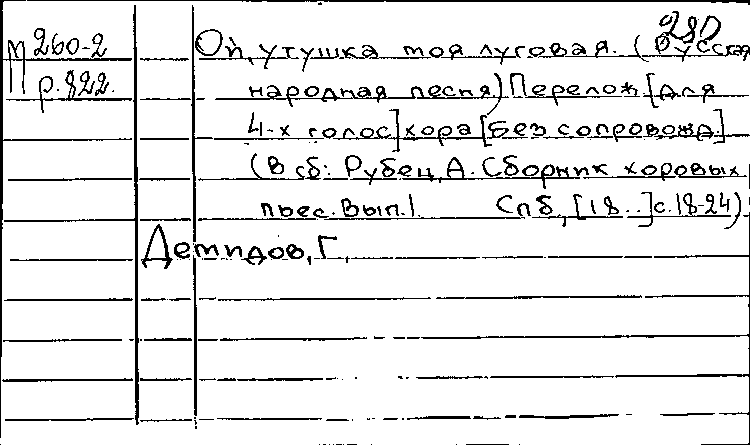 280
М 260-2
р.822.
Ой, утушка моя луговая. (Русская
народная песня) Перелож. [для
4-х голос] хора [без сопровожд.]
(В сб: Рубец, А. Сборник хоровых
пьес. Вып.1 Спб, [18..] с.18-24)
Демидов, Г.